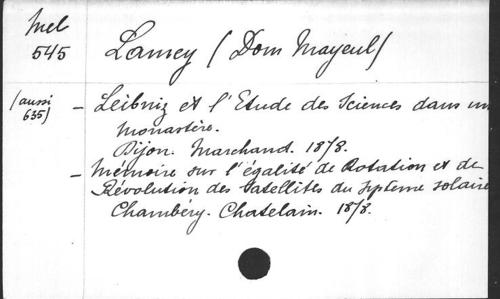 Mel
545
Lamey (Dom Mayeul)
(aussi
635)
- Leibniz et l'Etude des Sciences dans un
Monastère.
Dijon. Marchand. 1878.
- Mémoire sur l'égalité de Rotation et de
Révolution des Satellites du système solaire
Chambéry. Chatelain. 1878.